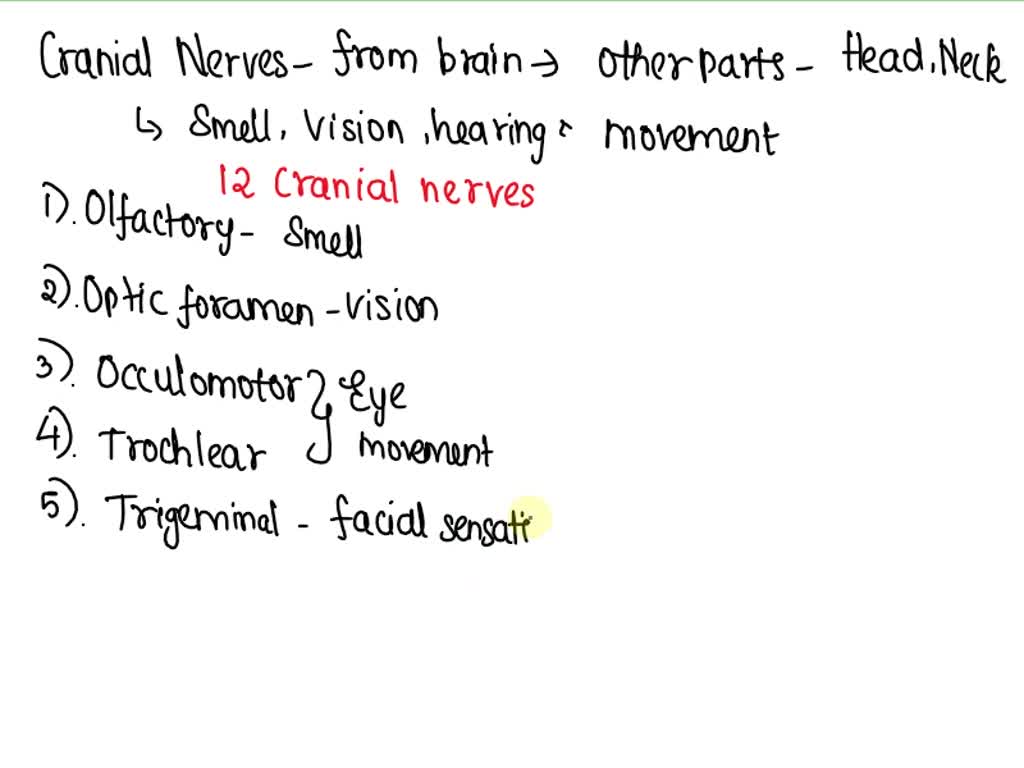 Cranial Nerves - from brain → other parts - Head, Neck
↳ Smell, Vision, hearing & movement
12 Cranial nerves
1). Olfactory - Smell
2). Optic foramen - vision
3). Occulomotor } Eye
4). Trochlear } movement
5). Trigeminal - facial sensati